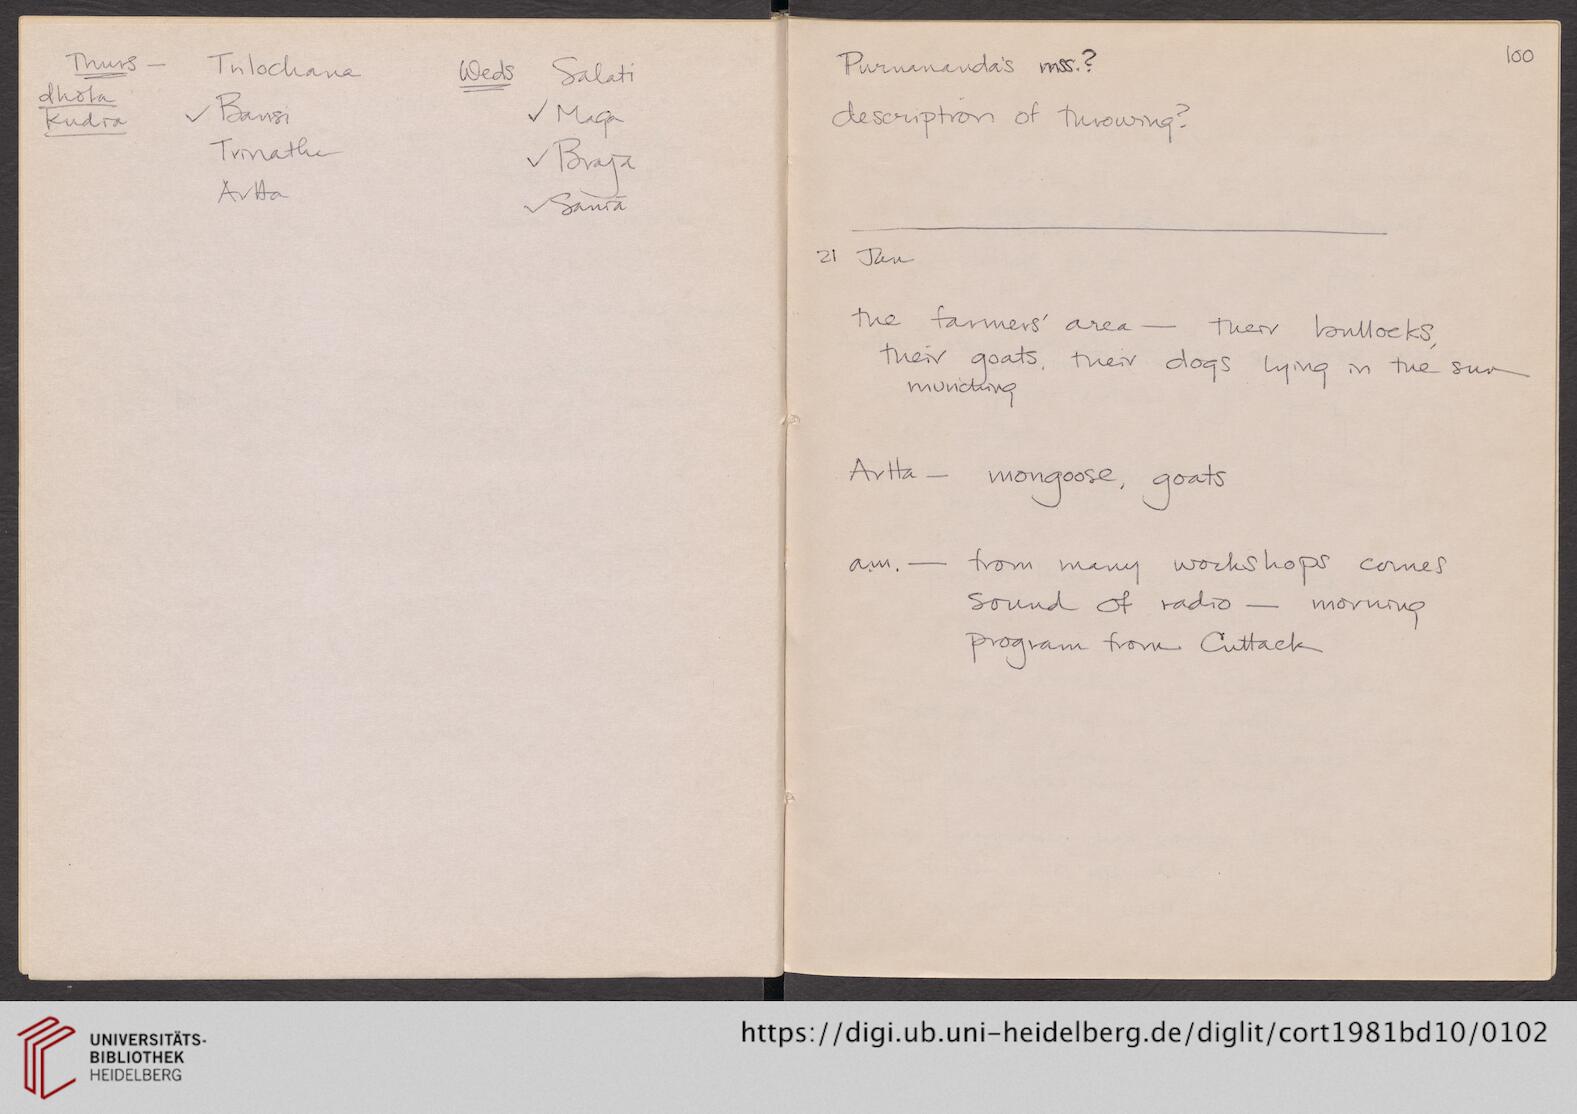 Thurs — Trilochana
dhola
kudia
✓ Bansi
Trinatha
Artta
Weds Salati
✓ Maga
✓ Braja
✓ Sania
100
Purnananda's mss.?
description of throwing?
21 Jan
the farmers' area — their bullocks,
their goats, their dogs lying in the sun
munching
Artta — mongoose, goats
a.m. — from many workshops comes
sound of radio — morning
program from Cuttack
UNIVERSITÄTS-
BIBLIOTHEK
HEIDELBERG
https://digi.ub.uni-heidelberg.de/diglit/cort1981bd10/0102